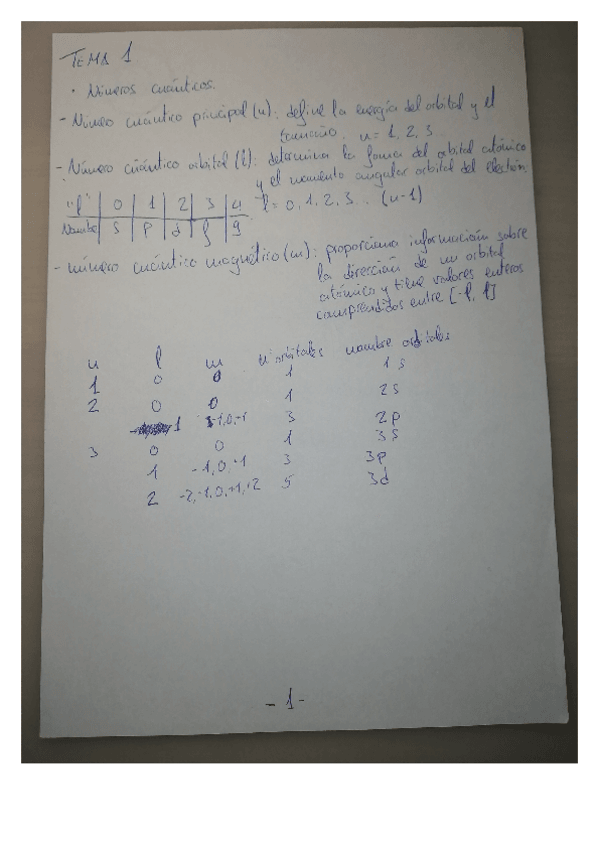 TEMA 1
· Números cuánticos.
- Número cuántico principal (n): define la energía del orbital y el
tamaño. n = 1, 2, 3
- Número cuántico orbital (l): determina la forma del orbital atómico
y el momento angular orbital del electrón.
"l" 0 1 2 3 4 l = 0, 1, 2, 3... (n-1)
Nombre s p d f g
- número cuántico magnético (m): proporciona información sobre
la dirección de un orbital
atómico y tiene valores enteros
comprendidos entre [-l, l]
n l m nº orbitales nombre orbitales
1 0 0 1 1s
2 0 0 1 2s
1 -1, 0, +1 3 2p
3 0 0 1 3s
1 -1, 0, +1 3 3p
2 -2, -1, 0, +1, +2 5 3d
- 1 -